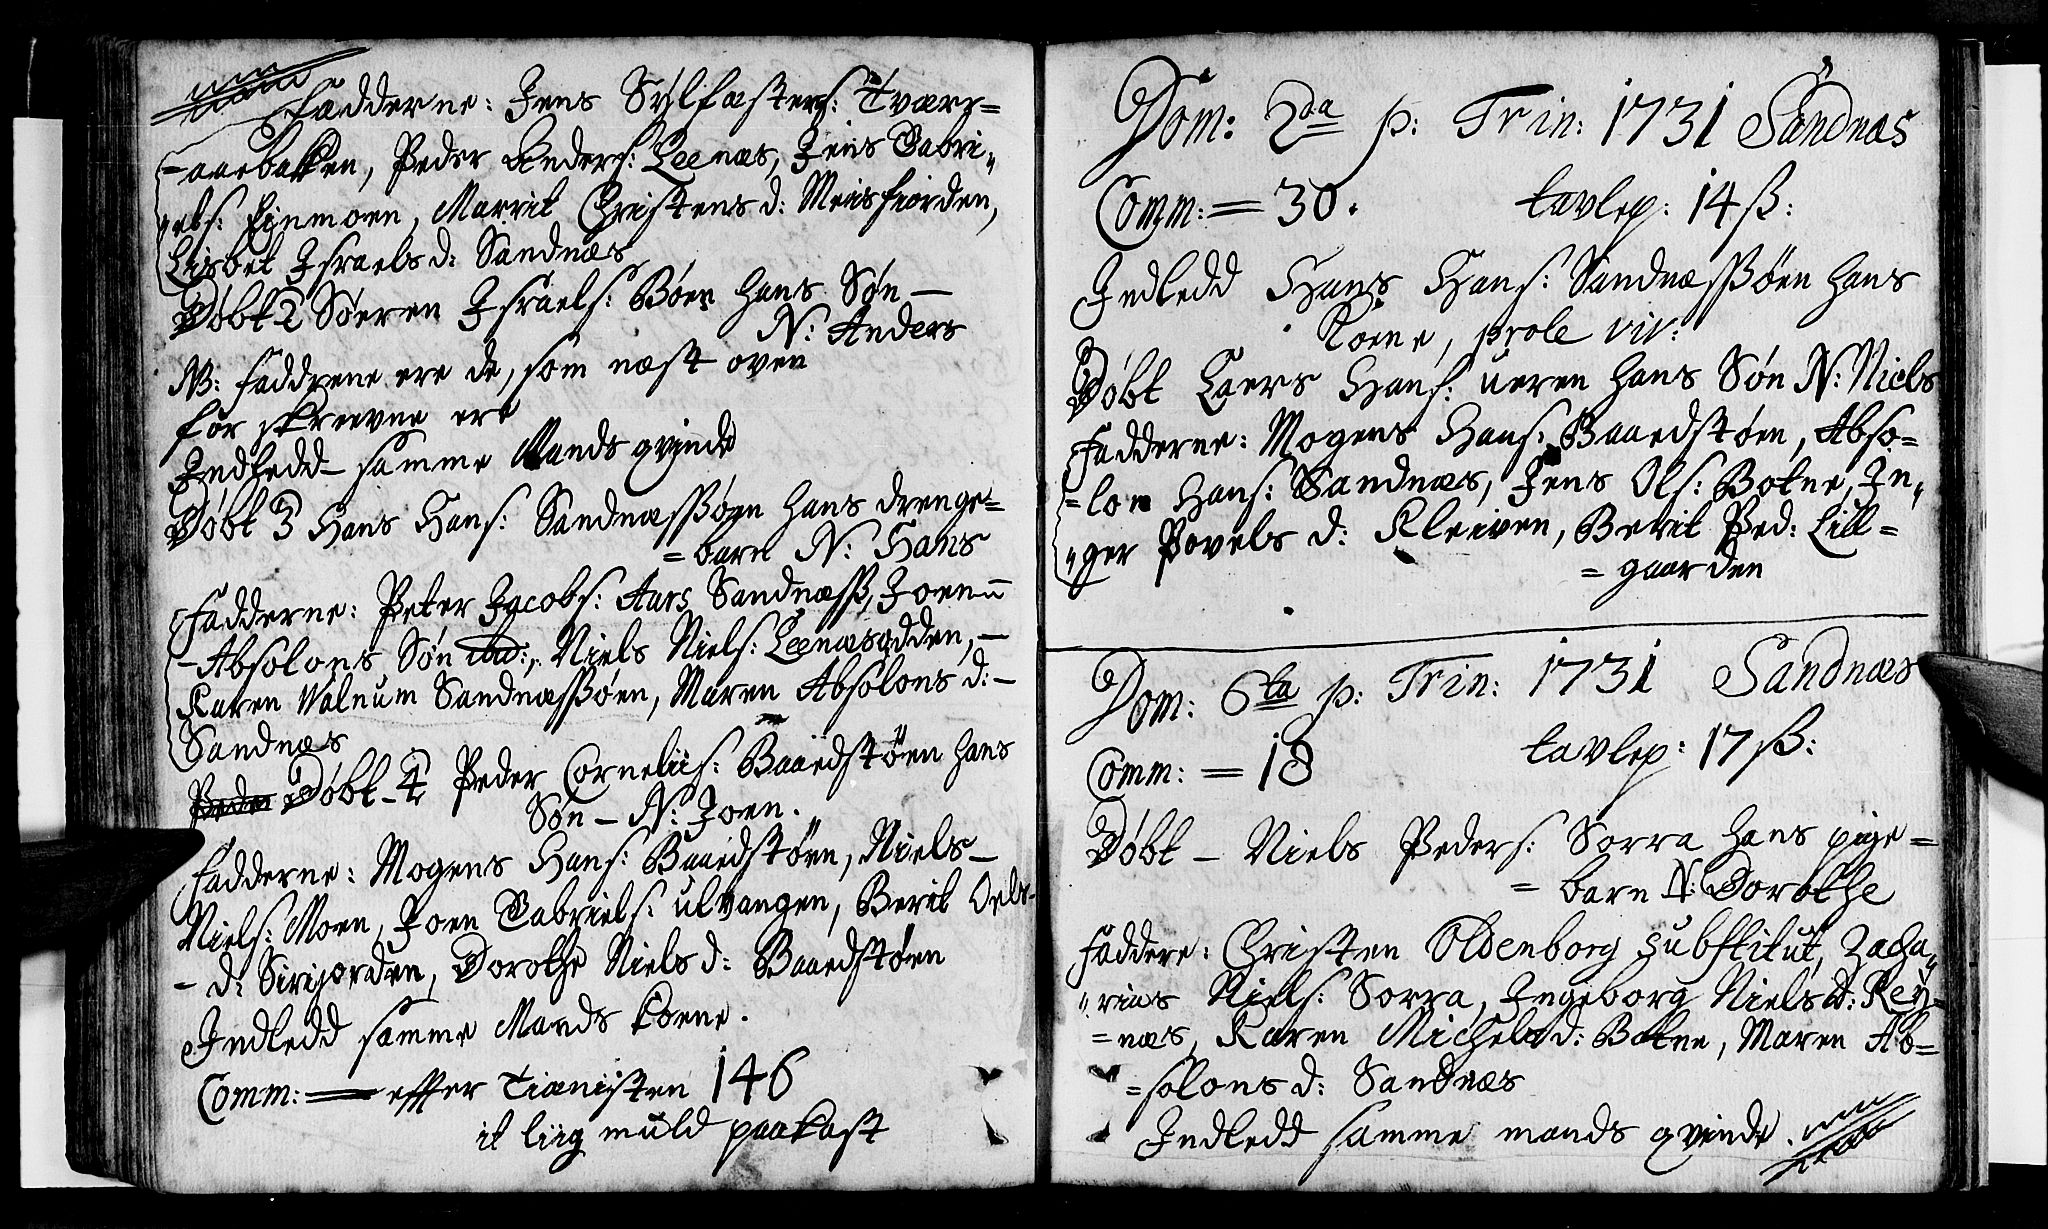 Fadderne: Jens Sylfæsters: Tvær=
-aaebakken, Peder Anders: Leenæs, Jens Gabri=
=els: Einmoen, Marrit Christens d: Meisfiorden,
Lisbet Israels d: Sandnæs
Døbt 2 Søeren Israels: Bøen hans Søn —
N: Anders
NB: Faddrene ere de, som næst oven
for skreevne ere
Indledd – samme Mands qvinde
Døbt 3 Hans Hans: Sandnæssøen hans drenge=
=barn N: Hans
Fadderne: Peter Jacobs: Aars Sandnæss, Joen=
-Absolons Søn ibid:, Niels Niels: Leenæsodden, –
Karen Walnum Sandnæssøen, Maren Absolons d: –
Sandnæs
Døbt – 4 Peder Corneliis: Baaedstøen hans
Søn – N: Joen.
Fadderne: Mogens Hans: Baaedstøen, Niels –
Niels: Moen, Joen Gabriels: Ulvangen, Berit Oels-
- d: Sirijorden, Dorothe Niels d: Baaedstøen
Indledd samme Mands Koene.
Comm: — effter Tienisten 146
it liig muld paakast
Dom: 2da p: Trin: 1731 Sandnæs
Comm: = 30. tavlep: 14 ß:
Indledd Hans Hans: Sandnæssøen hans
Koene, prole viv:
Døbt Laers Hans: ueren hans Søn N: Niels
Fadderne: Mogens Hans: Baaedstøen, Abso=
=lon Hans: Sandnæs, Jens Ols: Botne, In=
=ger Povels d: Kleiven, Berit Ped: Lill=
=gaarden
Dom: 6ta p: Trin: 1731 Sandnæs
Comm: = 18 tavlep: 17 ß:
Døbt – Niels Peders: Sorra hans pige=
=barn N: Dorothe
Faddere: Christen Oldenborg Substitut, Zacha=
=rias Niels: Sorra, Ingeborg Niels d: Rey=
=næs, Karen Michels d: Botne, Maren Ab=
=solons d: Sandnæs
Indledd samme mands qvinde.